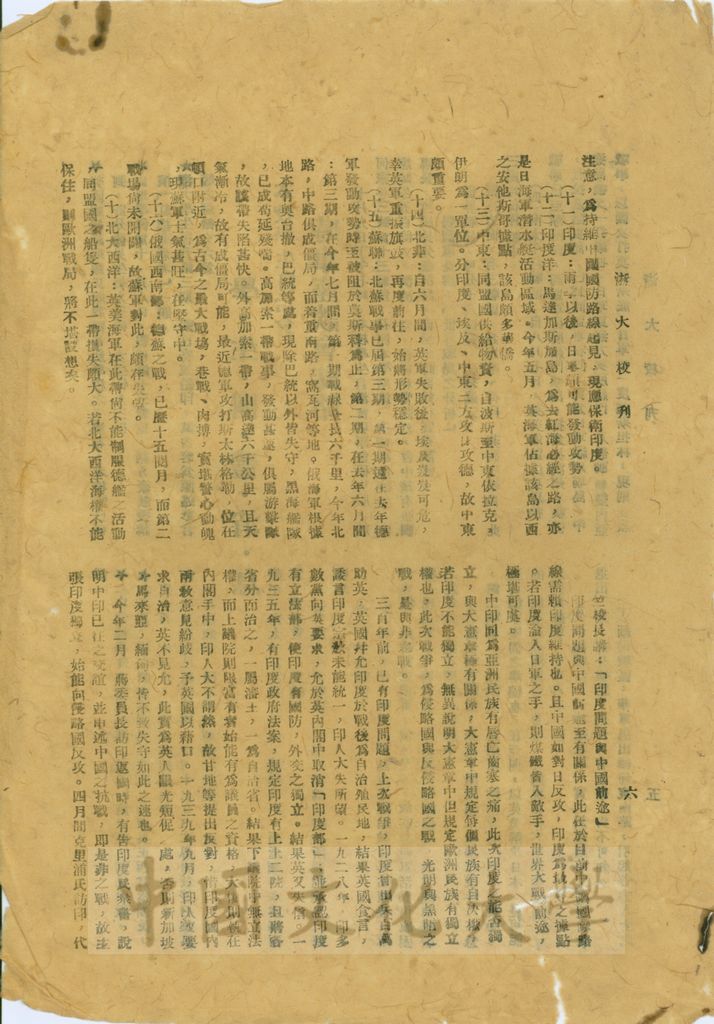 浙大校刊
六
注意，為持維中國國防路線起見，現應保衛印度。
(十一)印度：雨季以後，日軍頗可能發動攻勢。
(十二)印度洋：馬達加斯加島，為去紅海必經之路，亦
是日海軍潛水艇活動區域。今年五月，英海軍佔據該島以西
之安他斯哥據點，該島頗多華僑。
(十三)中東：同盟國供給物資，自波斯至中東依拉克，
伊朗為一單位。分印度、埃及、中東三方攻日攻德，故中東
頗重要。
(十四)北非：自六月間，英軍失敗後，埃及岌岌可危，
幸英軍重振旗鼓，再度前往，始將形勢穩定。
(十五)蘇聯：北蘇戰事已屆第三期，第一期遠在去年德
軍發動攻勢時至被阻於莫斯科為止，第二期，在去年六月間
：第三期，在今年七月間，第一期戰線長六千里，今年北
路，中路俱成僵局，而着重南路，窩瓦河等地。俄海軍根據
地本有奧台撤，巴統等處，現除巴統以外皆失守，黑海艦隊
，已成苟延殘喘。高加索一帶戰事，發動甚遲，俱屬游擊隊
，故該帶失陷甚快。外高加索一帶，山高達六千公里，且天
氣漸冷，故有成僵局可能，最近德軍攻打斯太林格勒，位在
頓口附近，為古今之最大戰場，巷戰、肉搏，實堪驚心動魄
，現蘇軍士氣甚旺，在堅守中。
(十六)俄國西南部：德蘇之戰，已歷十五閱月，而第二
戰場尚未開闢，故蘇軍對此，頗存失望。
(十七)北大西洋：英美海軍在此帶尚不能制服德艦，活動
，同盟國之船隻，在此一帶損失頗大。若北大西洋海權不能
保住，則歐洲戰局，將不堪設想矣。
竺校長講：「印度問題與中國前途」
印度問題與中國前途至有關係，此在於目前中國國際路
線需賴印度維持也。且中國如對日反攻，印度為之據點
。若印度淪入日軍之手，則煤鐵皆入敵手，世界大戰前途，
極堪可慮。
中印同為亞洲民族有唇亡齒寒之痛，此次印度之能否獨
立，與大憲章極有關係，大憲章中規定每個民族有自決權，
若印度不能獨立，無異說明大憲章中但規定歐洲民族有獨立
權也，此次戰爭，為侵略國與反侵略國之戰 光明與黑暗之
戰，是與非之戰。
三百年前，已有印度問題，上次戰爭，印度曾出兵百萬
助英，英國并允印度於戰後為自治殖民地，結果英國食言，
諉言印度宗教未能統一，印人大失所望。一九二八年，印多
數黨向英要求，允於英內閣中取消「印度部」，並承認印度
有立法部，使印度有國防，外交之獨立。結果英又失信，一
九三五年，有印度政府法案，規定印度有上下二院，且將各
省分而治之，一屬潘王，一為自治省。結果下議院事無立法
權，而上議院則限富有者始能有為議員之資格，大權則操在
內閣手中，印人大不謂然，故甘地等提出反對，惜印度國內
兩教意見紛歧，予英國以藉口。一九三九年九月，印人又要
求自治，英不見允，此實為英人眼光短促之處，否則新加坡
，馬來亞，緬甸，皆不致失守如此之速也。
今年二月，蔣委員長訪印返國時，有告印度民眾書，說
明中印已往之交誼，並申述中國之抗戰，即是非之戰，故主
張印度獨立，始能向侵略國反攻。四月間克里浦氏訪印，代
中國文化大學